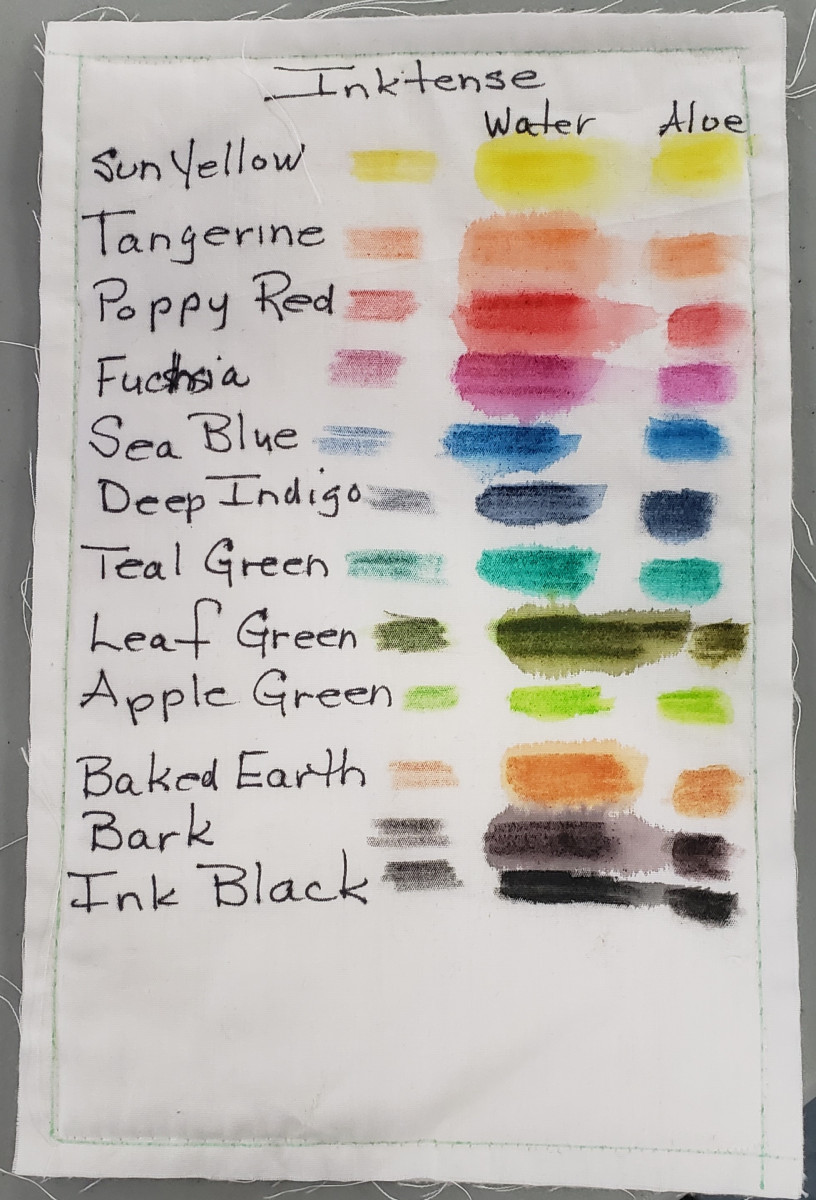 Inktense
Water Aloe
Sun Yellow
Tangerine
Poppy Red
Fuchsia
Sea Blue
Deep Indigo
Teal Green
Leaf Green
Apple Green
Baked Earth
Bark
Ink Black